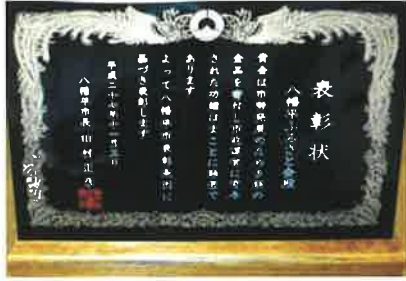 表彰状
八幡平
貴会は市勢発展のため多額の
金品を寄付し市政運営に寄与
された功績はまことに顕著で
あります
よって八幡平市表彰条例に
基づき表彰します
平成二十七年十一月三日
八幡平市長 田村正彦